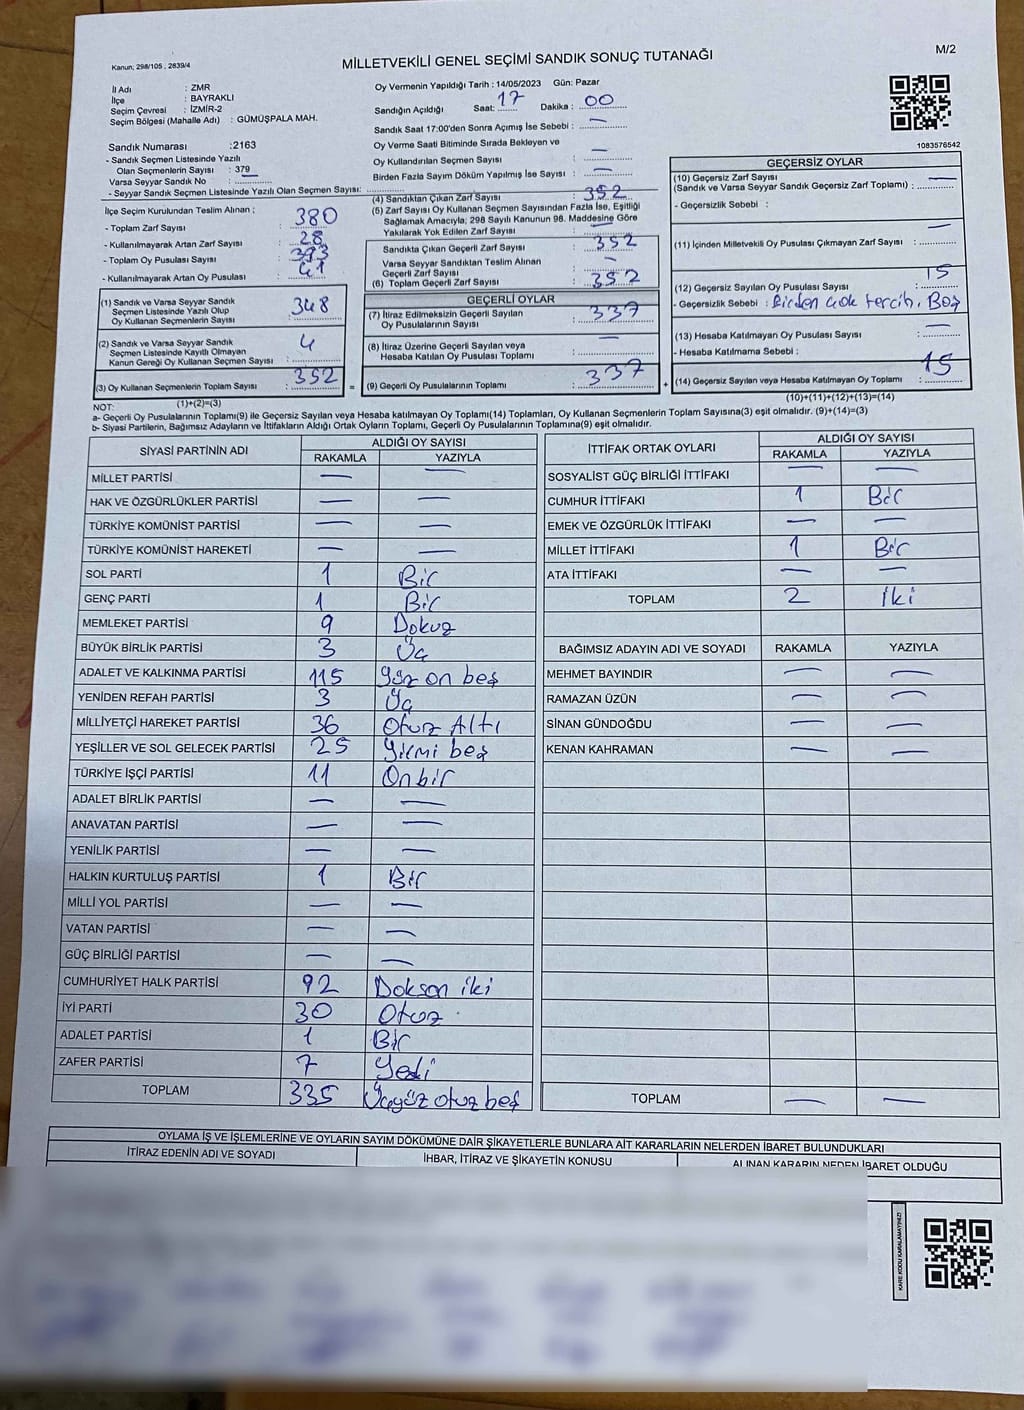 Kanun; 298/105 , 2839/4
MİLLETVEKİLİ GENEL SEÇİMİ SANDIK SONUÇ TUTANAĞI
M/2
İl Adı : ZMR
İlçe : BAYRAKLI
Seçim Çevresi : İZMİR-2
Seçim Bölgesi (Mahalle Adı) : GÜMÜŞPALA MAH.
Oy Vermenin Yapıldığı Tarih : 14/05/2023 Gün: Pazar
Sandığın Açıldığı Saat: 17 Dakika : 00
Sandık Saat 17:00'den Sonra Açımış İse Sebebi : —
Oy Verme Saati Bitiminde Sırada Bekleyen ve
Oy Kullandırılan Seçmen Sayısı : —
Birden Fazla Sayım Döküm Yapılmış İse Sayısı : —
1083576542
Sandık Numarası :2163
- Sandık Seçmen Listesinde Yazılı
Olan Seçmenlerin Sayısı : 379
Varsa Seyyar Sandık No : —
- Seyyar Sandık Seçmen Listesinde Yazılı Olan Seçmen Sayısı:
İlçe Seçim Kurulundan Teslim Alınan ;
- Toplam Zarf Sayısı : 380
- Kullanılmayarak Artan Zarf Sayısı : 28
- Toplam Oy Pusulası Sayısı : 393
- Kullanılmayarak Artan Oy Pusulası : 41
(1) Sandık ve Varsa Seyyar Sandık
Seçmen Listesinde Yazılı Olup
Oy Kullanan Seçmenlerin Sayısı 348
(2) Sandık ve Varsa Seyyar Sandık
Seçmen Listesinde Kayıtlı Olmayan
Kanun Gereği Oy Kullanan Seçmen Sayısı : 4
(3) Oy Kullanan Seçmenlerin Toplam Sayısı : 352 =
(1)+(2)=(3)
(4) Sandıktan Çıkan Zarf Sayısı : 352
(5) Zarf Sayısı Oy Kullanan Seçmen Sayısından Fazla İse, Eşitliği
Sağlamak Amacıyla; 298 Sayılı Kanunun 98. Maddesine Göre
Yakılarak Yok Edilen Zarf Sayısı : —
Sandıkta Çıkan Geçerli Zarf Sayısı : 352
Varsa Seyyar Sandıktan Teslim Alınan
Geçerli Zarf Sayısı : —
(6) Toplam Geçerli Zarf Sayısı : 352
GEÇERLİ OYLAR
(7) İtiraz Edilmeksizin Geçerli Sayılan
Oy Pusulalarının Sayısı : 337
(8) İtiraz Üzerine Geçerli Sayılan veya
Hesaba Katılan Oy Pusulası Toplamı : —
(9) Geçerli Oy Pusulalarının Toplamı : 337 +
GEÇERSİZ OYLAR
(10) Geçersiz Zarf Sayısı
(Sandık ve Varsa Seyyar Sandık Geçersiz Zarf Toplamı) : —
- Geçersizlik Sebebi :
(11) İçinden Milletvekili Oy Pusulası Çıkmayan Zarf Sayısı : —
(12) Geçersiz Sayılan Oy Pusulası Sayısı : 15
- Geçersizlik Sebebi : Birden çok tercih, Boş
(13) Hesaba Katılmayan Oy Pusulası Sayısı : —
- Hesaba Katılmama Sebebi :
(14) Geçersiz Sayılan veya Hesaba Katılmayan Oy Toplamı : 15
(10)+(11)+(12)+(13)=(14)
NOT:
a- Geçerli Oy Pusulalarının Toplamı(9) ile Geçersiz Sayılan veya Hesaba katılmayan Oy Toplamı(14) Toplamları, Oy Kullanan Seçmenlerin Toplam Sayısına(3) eşit olmalıdır. (9)+(14)=(3)
b- Siyasi Partilerin, Bağımsız Adayların ve İttifakların Aldığı Ortak Oyların Toplamı, Geçerli Oy Pusulalarının Toplamına(9) eşit olmalıdır.
SİYASİ PARTİNİN ADI ALDIĞI OY SAYISI
RAKAMLA YAZIYLA
MİLLET PARTİSİ — —
HAK VE ÖZGÜRLÜKLER PARTİSİ — —
TÜRKİYE KOMÜNİST PARTİSİ — —
TÜRKİYE KOMÜNİST HAREKETİ — —
SOL PARTİ 1 Bir
GENÇ PARTİ 1 Bir
MEMLEKET PARTİSİ 9 Dokuz
BÜYÜK BİRLİK PARTİSİ 3 Üç
ADALET VE KALKINMA PARTİSİ 115 Yüz on beş
YENİDEN REFAH PARTİSİ 3 Üç
MİLLİYETÇİ HAREKET PARTİSİ 36 Otuz Altı
YEŞİLLER VE SOL GELECEK PARTİSİ 25 Yirmi beş
TÜRKİYE İŞÇİ PARTİSİ 11 Onbir
ADALET BİRLİK PARTİSİ — —
ANAVATAN PARTİSİ — —
YENİLİK PARTİSİ — —
HALKIN KURTULUŞ PARTİSİ 1 Bir
MİLLİ YOL PARTİSİ — —
VATAN PARTİSİ — —
GÜÇ BİRLİĞİ PARTİSİ — —
CUMHURİYET HALK PARTİSİ 92 Doksan iki
İYİ PARTİ 30 Otuz
ADALET PARTİSİ 1 Bir
ZAFER PARTİSİ 7 Yedi
TOPLAM 335 Üçyüz otuz beş
İTTİFAK ORTAK OYLARI ALDIĞI OY SAYISI
RAKAMLA YAZIYLA
SOSYALİST GÜÇ BİRLİĞİ İTTİFAKI — —
CUMHUR İTTİFAKI 1 Bir
EMEK VE ÖZGÜRLÜK İTTİFAKI — —
MİLLET İTTİFAKI 1 Bir
ATA İTTİFAKI — —
TOPLAM 2 İki
BAĞIMSIZ ADAYIN ADI VE SOYADI RAKAMLA YAZIYLA
MEHMET BAYINDIR — —
RAMAZAN ÜZÜN — —
SİNAN GÜNDOĞDU — —
KENAN KAHRAMAN — —
TOPLAM — —
OYLAMA İŞ VE İŞLEMLERİNE VE OYLARIN SAYIM DÖKÜMÜNE DAİR ŞİKAYETLERLE BUNLARA AİT KARARLARIN NELERDEN İBARET BULUNDUKLARI
İTİRAZ EDENİN ADI VE SOYADI İHBAR, İTİRAZ VE ŞİKAYETİN KONUSU ALINAN KARARIN NEDEN İBARET OLDUĞU
KARE KODU KARALAMAYINIZ!